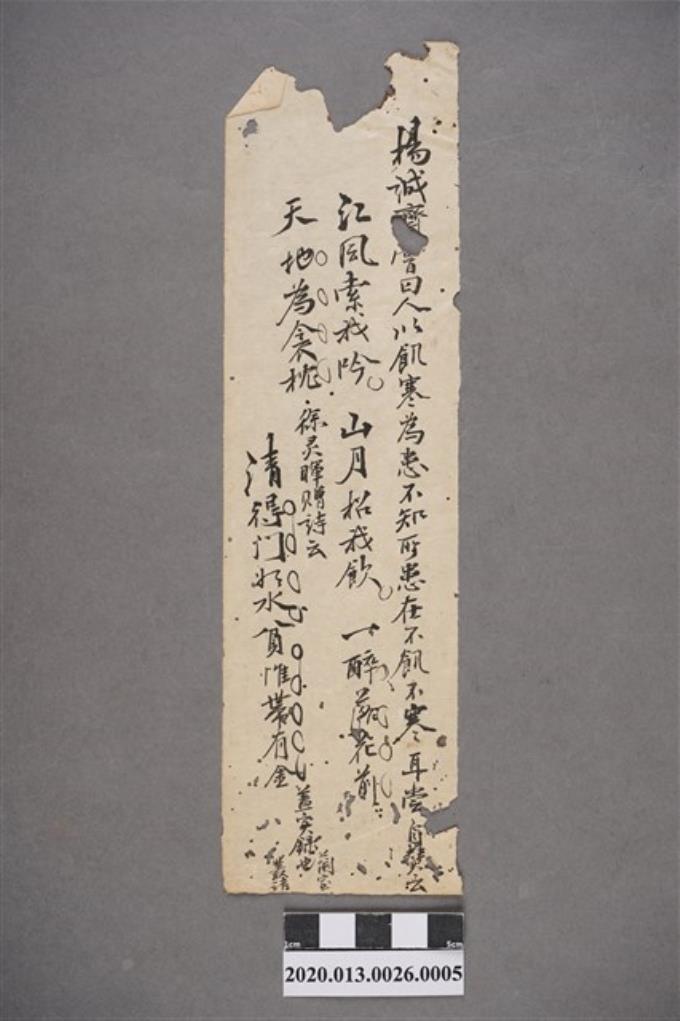 楊誠齋嘗曰人以飢寒為患不知所患在不飢不寒耳嘗自贊云
江風索我吟 山月招我飲 一醉落花前
天地為衾枕 徐灵暉贈詩云
清得门如水 貧惟帶有金
蓋实錄也
1cm 5cm
2020.013.0026.0005